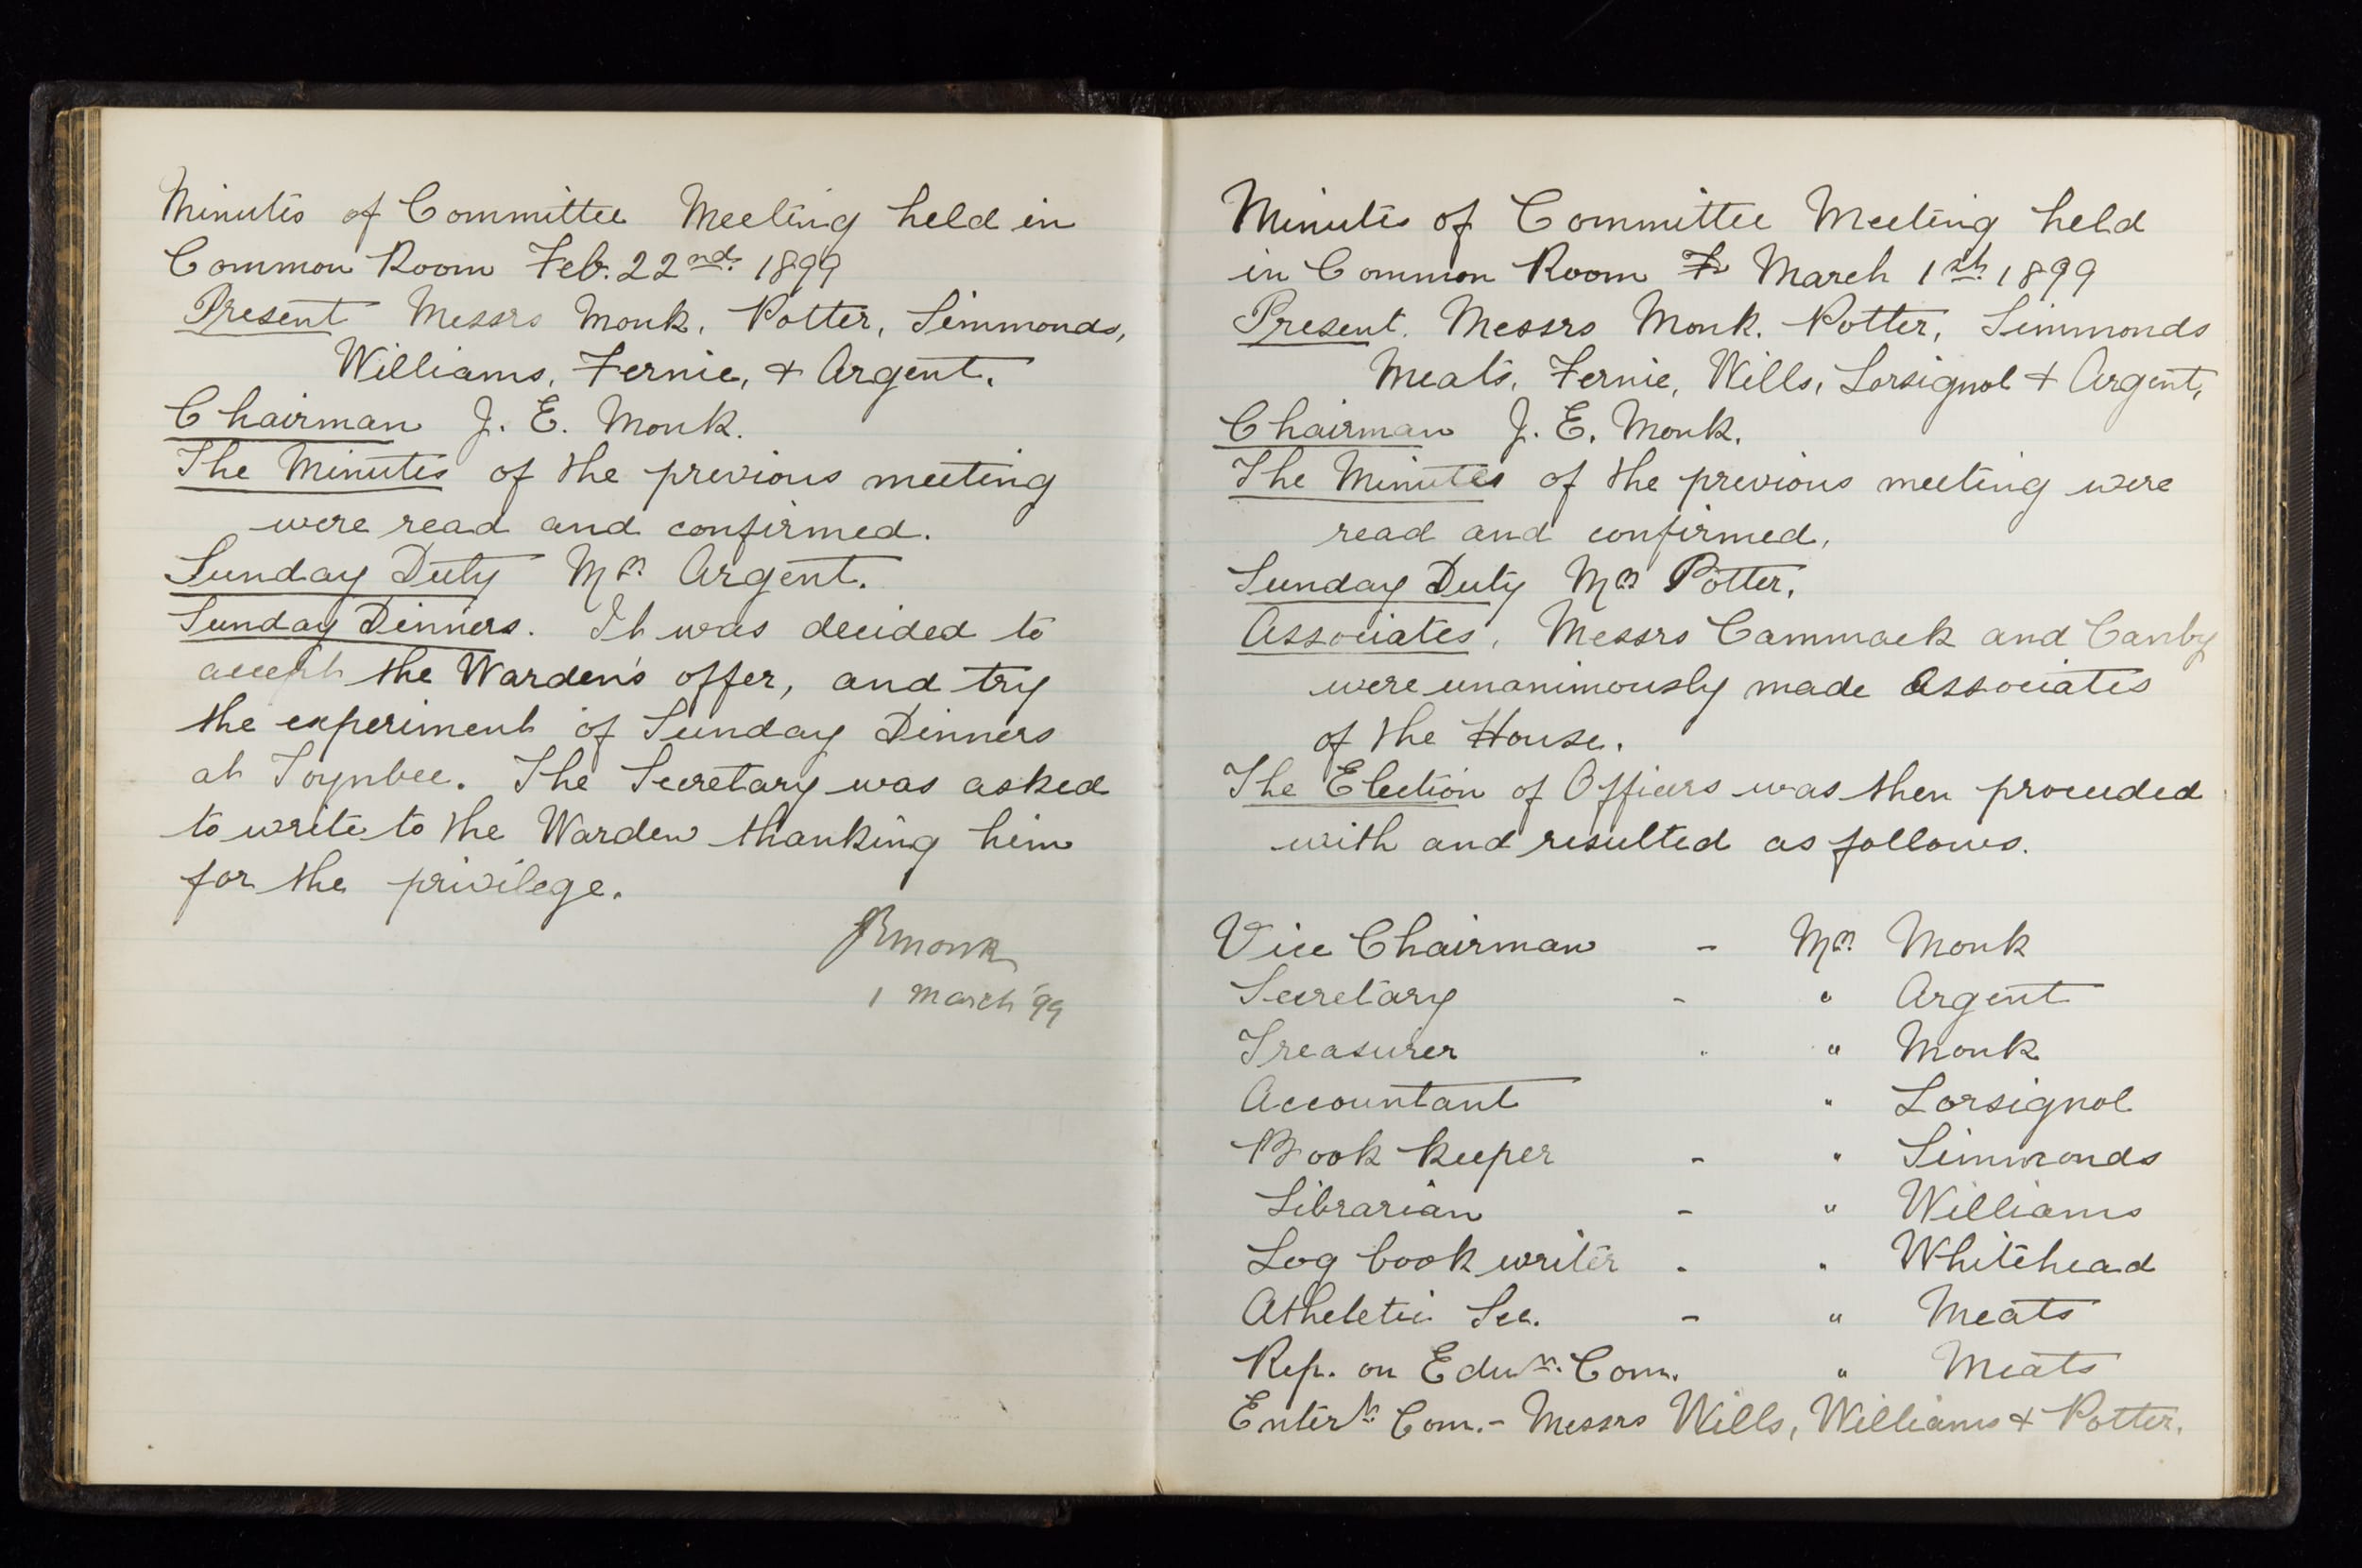 Minutes of Committee Meeting held in
Common Room Feb. 22nd. 1899
Present Messrs Monk, Potter, Simmonds,
Williams, Fernie, + Argent.
Chairman J. E. Monk.
The Minutes of the previous meeting
were read and confirmed.
Sunday Duty Mr. Argent.
Sunday Dinners. It was decided to
accept the Warden's offer, and try
the experiment of Sunday Dinners
at Toynbee. The Secretary was asked
to write to the Warden thanking him
for the privilege.
JEMonk
1 March '99
Minutes of Committee Meeting held
in Common Room Fe March 1st. 1899
Present. Messrs Monk. Potter, Simmonds
Meats, Fernie, Wills, Lorsignol + Argent,
Chairman J. E. Monk.
The Minutes of the previous meeting were
read and confirmed,
Sunday Duty Mr Potter,
Associates, Messrs Cammack and Canby
were unanimously made Associates
of the House.
The Election of Officers was then proceeded
with and resulted as follows.
Vice Chairman - Mr. Monk
Secretary - " Argent
Treasurer . " Monk
Accountant " Lorsignol
Book keeper - " Simmonds
Librarian - " Williams
Log book writer - " Whitehead
Atheletic Sec. - " Meats
Rep. on Edun. Com. " Meats
Entert. Com. - Messrs Wills, Williams + Potter.